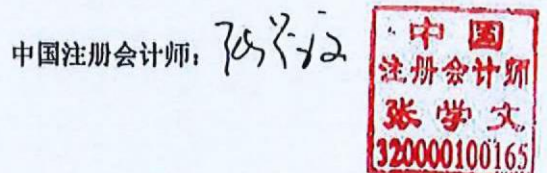 中国注册会计师：
中国
注册会计师
张学文
320000100165